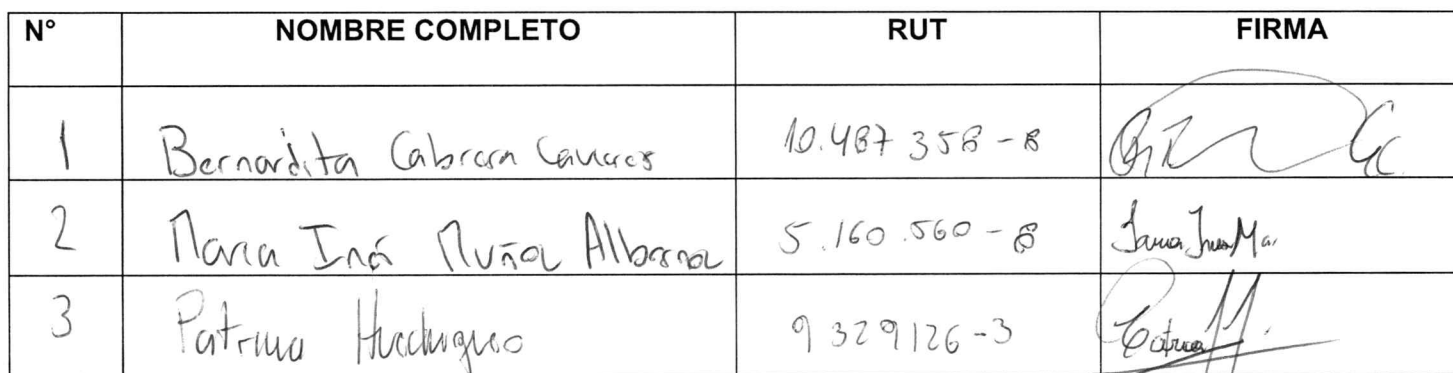 N° NOMBRE COMPLETO RUT FIRMA
1 Bernardita Cabrera 10.487 358-8
2 Maria Inés Muñoz Albornoz 5.160.560-8
3 Patricia 9 329126-3